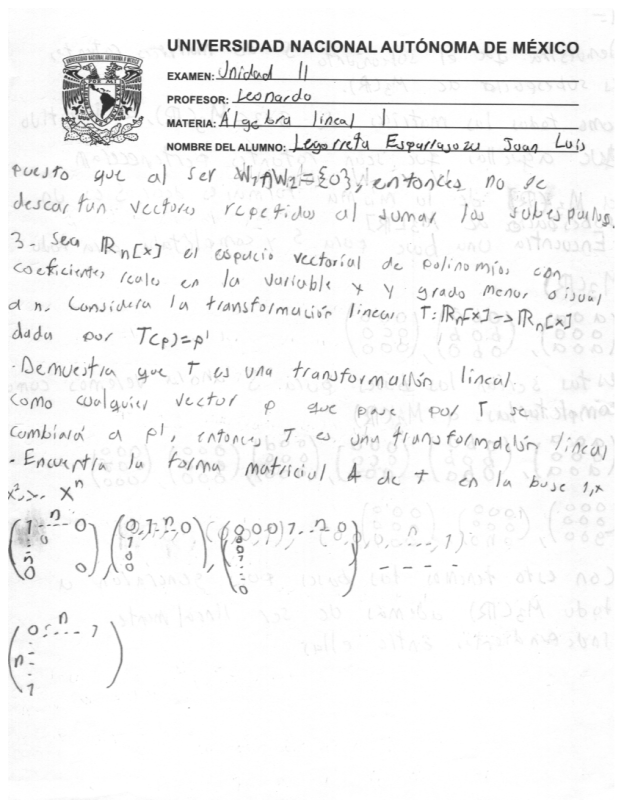 UNIVERSIDAD NACIONAL AUTÓNOMA DE MÉXICO
EXAMEN: Unidad II
PROFESOR: Leonardo
MATERIA: Álgebra lineal I
NOMBRE DEL ALUMNO: Legorreta Esparragoza Juan Luis
puesto que al ser W₁∩W₂={0}, entonces no se
descartan vectores repetidos al sumar los subespacios.
3.- Sea ℝn[x] el espacio vectorial de polinomios con
coeficientes reales en la variable x y grado menor o igual
a n. Considera la transformación lineal T:ℝn[x]->ℝn[x]
dada por T(p)=p'
-Demuestra que T es una transformación lineal.
Como cualquier vector p que pase por T se
cambiará a p', entonces T es una transformación lineal
-Encuentra la forma matricial A de T en la base 1,x
x²,... xⁿ